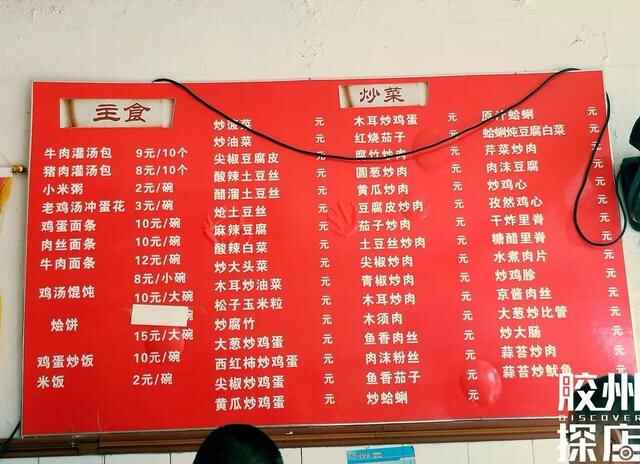 主食
牛肉灌汤包 9元/10个
猪肉灌汤包 8元/10个
小米粥 2元/碗
老鸡汤冲蛋花 3元/碗
鸡蛋面条 10元/碗
肉丝面条 10元/碗
牛肉面条 12元/碗
鸡汤馄饨 8元/小碗
10元/大碗
烩饼
15元/大碗
鸡蛋炒饭 10元/碗
米饭 2元/碗
炒菜
炒菠菜 元
炒油菜 元
尖椒豆腐皮 元
酸辣土豆丝 元
醋溜土豆丝 元
炝土豆丝 元
麻辣豆腐 元
酸辣白菜 元
炒大头菜 元
木耳炒油菜 元
松子玉米粒 元
炒腐竹 元
大葱炒鸡蛋 元
西红柿炒鸡蛋 元
尖椒炒鸡蛋 元
黄瓜炒鸡蛋 元
木耳炒鸡蛋 元
红烧茄子 元
腐竹炒肉 元
圆葱炒肉 元
黄瓜炒肉 元
豆腐皮炒肉 元
茄子炒肉 元
土豆丝炒肉 元
尖椒炒肉 元
青椒炒肉 元
木耳炒肉 元
木须肉 元
鱼香肉丝 元
肉沫粉丝 元
鱼香茄子 元
炒蛤蜊 元
原汁蛤蜊 元
蛤蜊炖豆腐白菜 元
芹菜炒肉 元
肉沫豆腐 元
炒鸡心 元
孜然鸡心 元
干炸里脊 元
糖醋里脊 元
水煮肉片 元
炒鸡胗 元
京酱肉丝 元
大葱炒比管 元
炒大肠 元
蒜苔炒肉 元
蒜苔炒鱿鱼 元
胶州
DISCOVER
探店